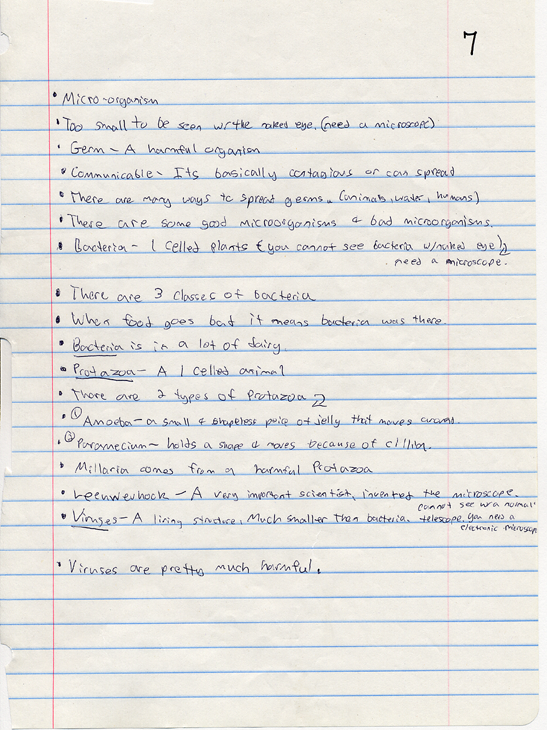 7
• Micro-organism
• Too small to be seen w/the naked eye. (need a microscope)
• Germ - A harmful organism
• Communicable - Its basically contagious or can spread
• There are many ways to spread germs. (animals, water, humans)
• There are some good microorganisms & bad microorganisms.
• Bacteria - 1 celled plants & you cannot see bacteria w/naked eye
need a microscope.
• There are 3 classes of bacteria
• When food goes bad it means bacteria was there.
• Bacteria is in a lot of dairy.
• Protazoa - A 1 celled animal
• There are 2 types of Protazoa
• ① Amoeba - a small & shapeless peice of jelly that moves around.
• ② Paramecium - holds a shape & moves because of
• Millaria comes from a harmful Protazoa
• Leeuwevhook - A very important scientist, invented the microscope.
• Viruses - A living structure. Much smaller than bacteria. cannot see w a normal
telescope, you need a
electronic microscope
• Viruses are pretty much harmful.